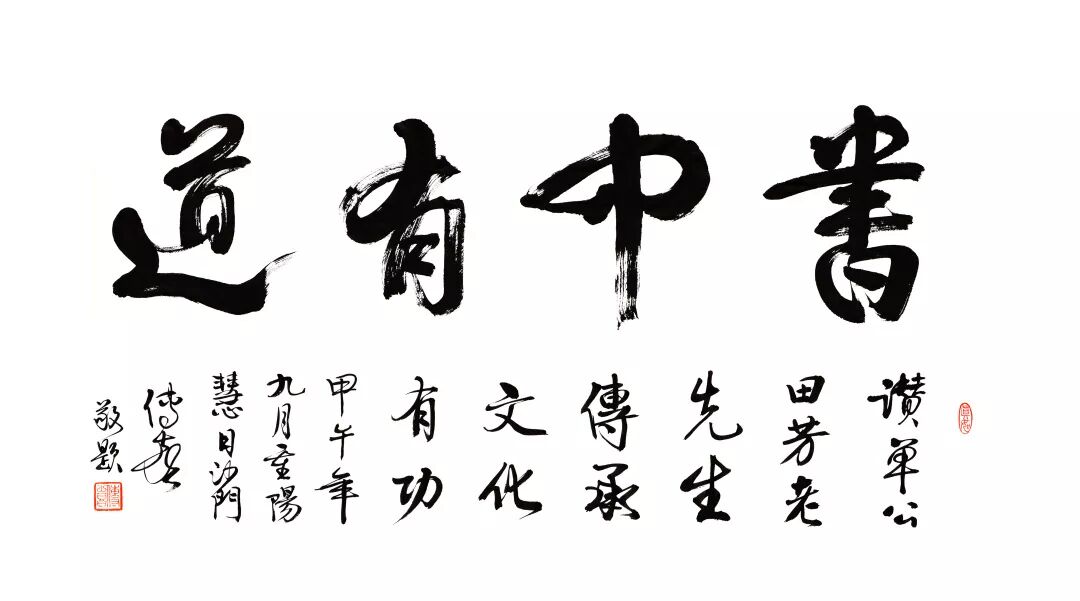 書中有道
讚單公
田芳老
先生
傳承
文化
有功
甲午年
九月重陽
慧日沙門
傳喜
敬題